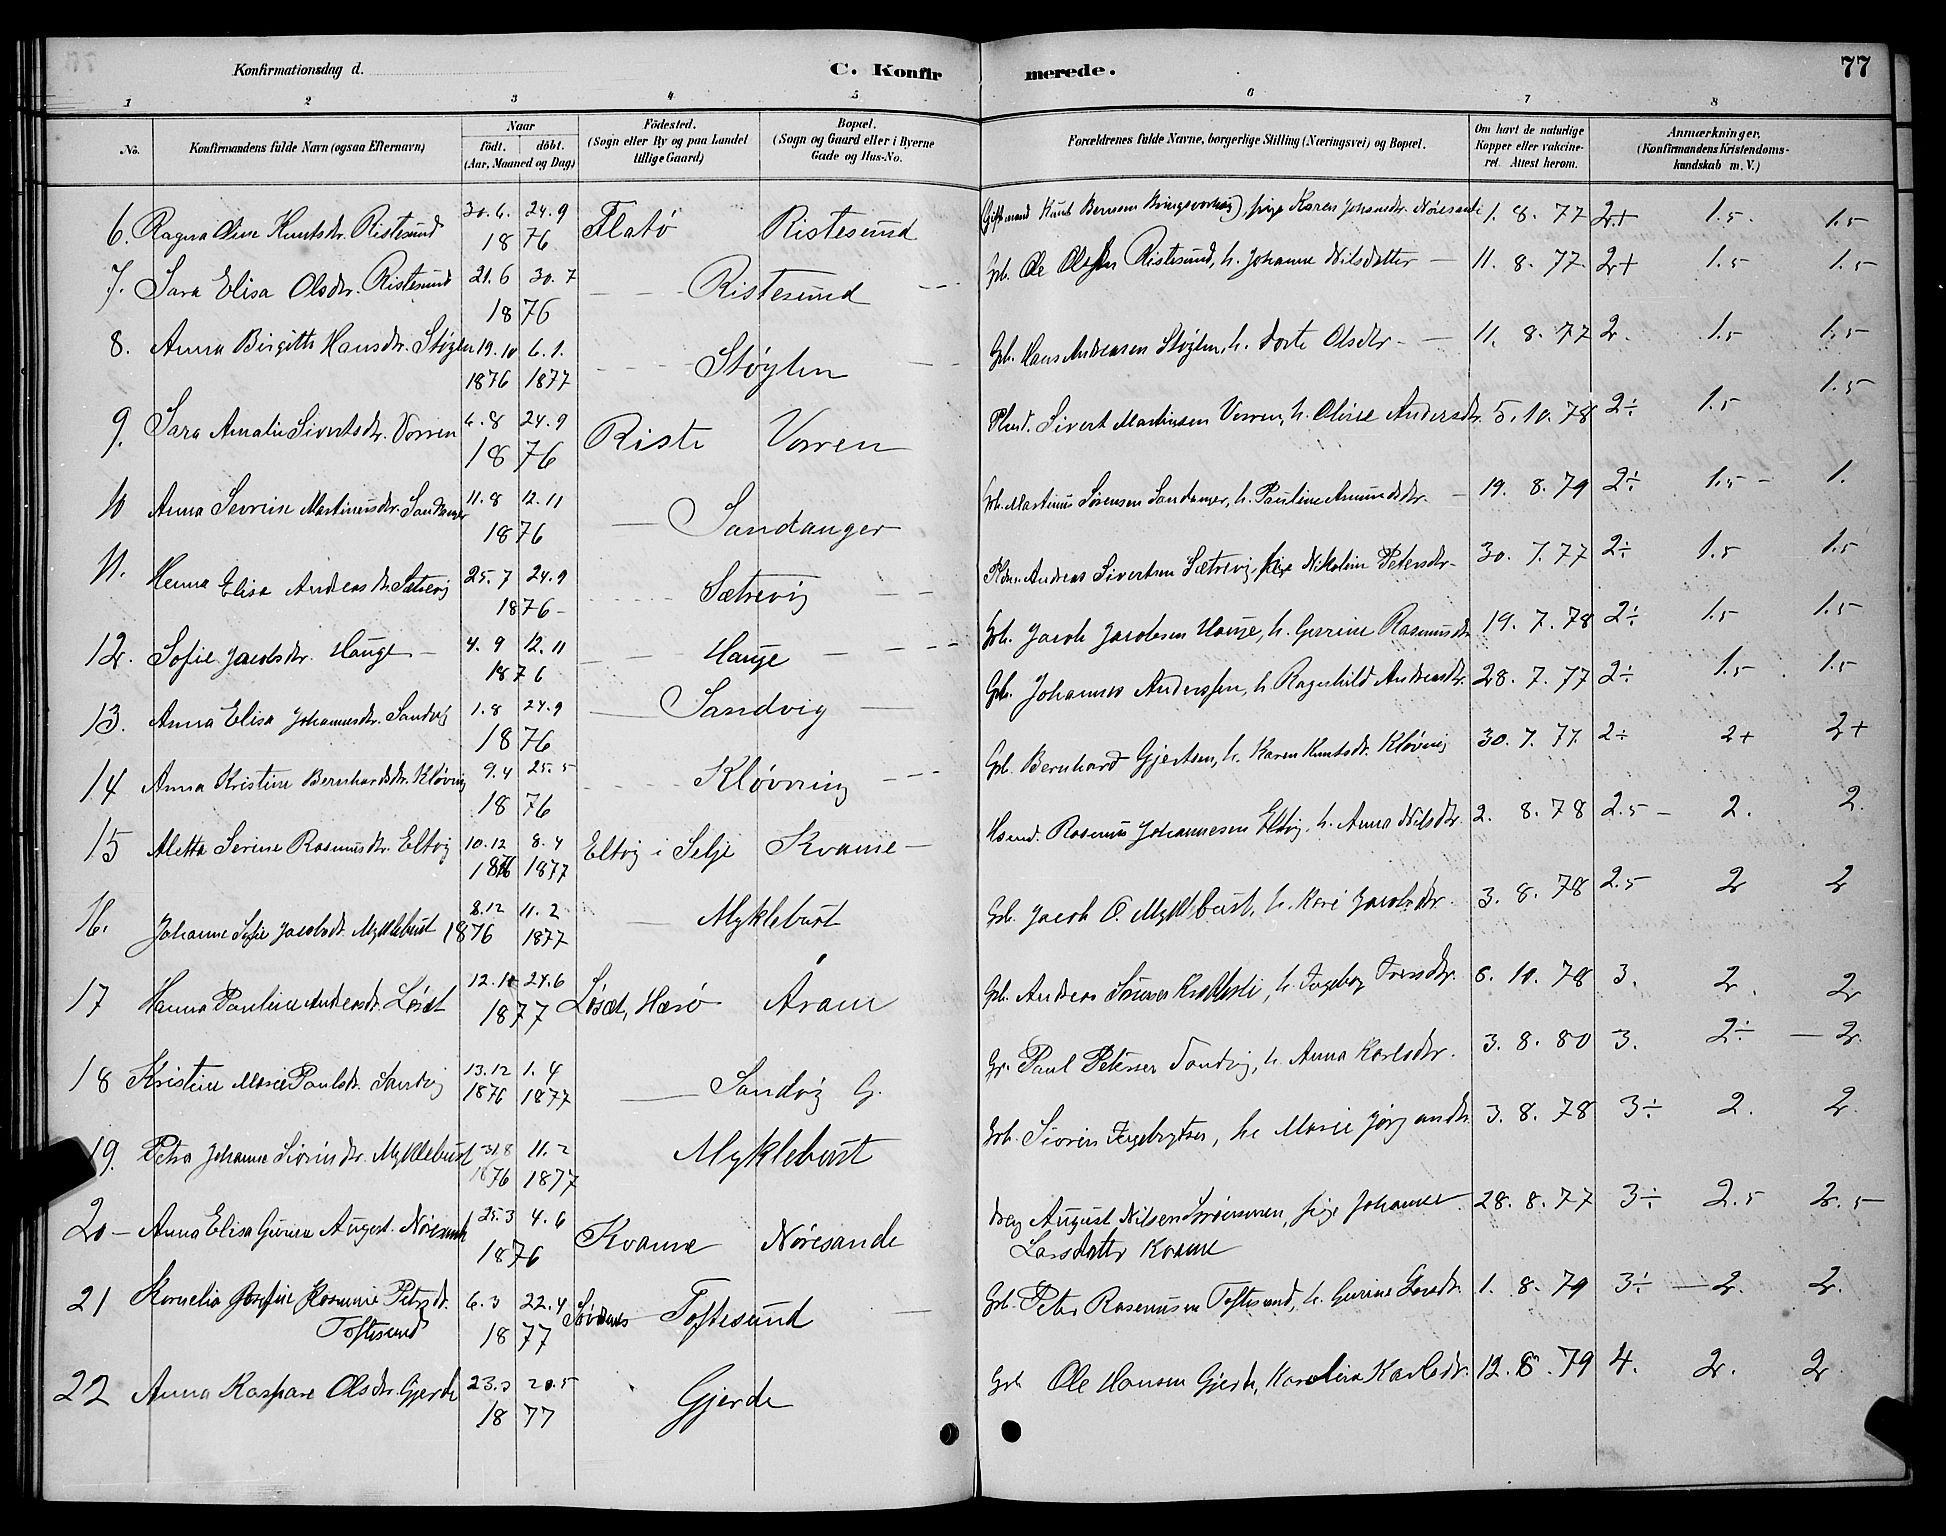 Konfirmationsdag d.
C. Konfirmerede.
77
1 2 3 4 5 6 7 8
No.
Konfirmandens fulde Navn (ogsaa Efternavn)
Naar
födt. döbt.
(Aar, Maaned og Dag)
Födested.
(Sogn eller By og paa Landet
tillige Gaard)
Bopæl.
(Sogn og Gaard eller i Byerne
Gade og Hus-No.
Forældrenes fulde Navne, borgerlige Stilling (Næringsvei) og Bopæl.
Om havt de naturlige
Kopper eller vakcine-
ret. Attest herom.
Anmærkninger.
(Konfirmandens Kristendoms-
kundskab m. V.)
6. Ragna Oline Knutsdr. Ristesund 30.6. 24.9 1876 Flatö Ristesund Giftmand Knut Bernsen, pige Karen Johansdr. Nöresande 1. 8. 77 2+ 1.5. 1.5
7. Sara Elisa Olsdr. Ristesund 21.6 30.7 1876 — Ristesund — Gb. Ole Olsen Ristesund, h. Johanne Nilsdatter — 11. 8. 77 2+ 1.5 1.5
8. Anna Birgitte Hansdr. Støylen 19.10 1876 6.1. 1877 — Støylen — Gb. Hans Andreasen Støylen, h. Dorte Olsdr. — 11. 8. 77 2. 1.5 1.5
9. Sara Amalie Sivertsdr. Vorren 6.8 24.9 1876 Riste Vorren Plmd. Sivert Martinsen Vorren, h. Oline Andersdr. 5. 10. 78 2÷ 1.5 1.5
10 Anna Sevrine Martinusdr. Sandanger 11.8 12.11 1876 — Sandanger Gb. Martinus Sørensen Sandanger, h. Pauline Amundsdr. — 19. 8. 79 2÷ 1.5 - 1.
11. Henna Elisa Andreasdr. Sætrevig 25.7 24.9 1876 — Sætrevig — Andreas Sivertsen Sætrevig, pige Nikoline Petersdr — 30. 7. 77 2÷ 1.5 1.5
12. Sofie Jacobsdr. Hauge — 4.9 12.11 1876 — Hauge — Gb. Jacob Jacobsen Hauge, h. Gurine Rasmusdr. 19. 7. 78 2÷ 1.5 1.5
13. Anna Elisa Johannesdr. Sandvig 1.8 24.9 1876 — Sandvig — Gb. Johannes Anderssen, h. Ragnhild Andreasdr. 28. 7. 77 2÷ 1.5 1.5
14 Anna Kristine Bernhardsdr. Kløvning 9.4 25.5 1876 — Kløvning — Gb. Bernhard Gjertsen, h. Karen Knutsdr. Kløvning 30. 7. 77. 2÷ 2+ 2+
15 Aletta Serine Rasmusdr. Eltvig 10.12 1876 8.4 1877 Eltvig i Selje Kvame — Hsmd. Rasmus Johannesen Eltvig, h. Anna Nilsdr. 2. 8. 78 2.5 - 2. 2.
16. Johanne Sofie Jacobsdr. Myklebust 8.12 1876 11.2 1877 — Myklebust Gb. Jacob O. Myklebust, h. Kari Jacobsdr. 3. 8. 78 2.5 2 2
17 Hanna Pauline Andreasdr. Løset 12.10 24.6 1877 Løset, Herö Åram Gb. Andreas, h. Ingeborg Iversdr. 6. 10. 78 3. 2. 2
18 Kristine Marie Paulsdr. Sandvig 13.12 1876 1.4 1877 — Sandvig G. Gb. Paul Petersen Sandvig, h. Anna Karlsdr. 3. 8. 80 3. 2÷ - 2.
19. Petra Johanne Siversdr. Myklebust 31.8 1876 11.2 1877 Myklebust Gb. Siver Ingebrigtsen, h. Marie Jörgensdr. 3. 8. 78 3÷ 2. 2.
20 - Anna Elisa Gurine Augusd. Nöresande 25.3 4.6 1876 Kvame Nöresande August Nilsen, pige Johanne 28. 8. 77 3÷ 2.5 2.5
Larsdatter Kvame
21 Kornelia Josefine Rasmine Petersdr. 6.3 22.4 1877 — Toftesund — Gb. Peter Rasmusen Toftesund, h. Gurine Larsdr. 1. 8. 79 3÷ - 2. 2.
Toftesund
22 Anna Kaspare Olsdr. Gjerde 23.3 20.5 1877 Gjerde Gb. Ole Hansen Gjerde, Karolina Karlsdr. 12. 8. 79 4. 2. 2